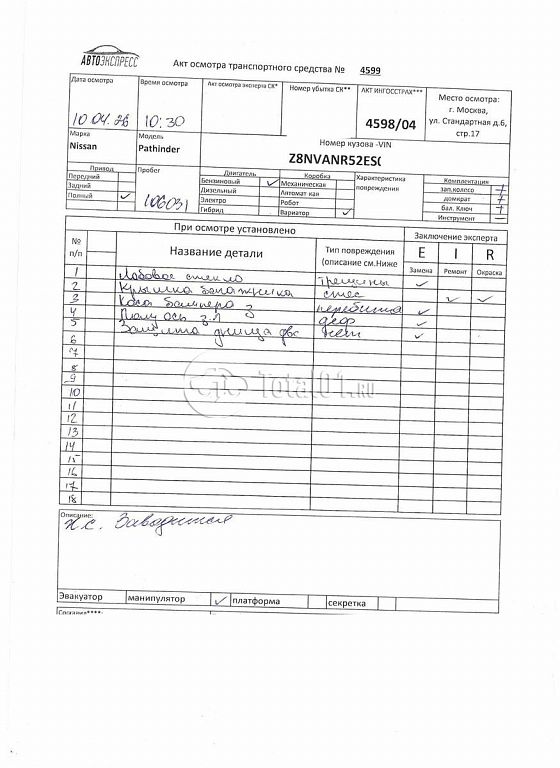 АВТОЭКСПРЕСС
Акт осмотра транспортного средства № 4599
Дата осмотра
Время осмотра
Акт осмотра эксперта СК*
Номер убытка СК**
АКТ ИНГОССТРАХ***
Место осмотра:
г. Москва,
ул. Стандартная д.6,
стр.17
10.04.26
10:30
4598/04
Марка
Модель
Номер кузова -VIN
Nissan
Pathinder
Z8NVANR52ES
Привод
Пробег
Двигатель
Коробка
Характеристика
повреждения
Комплектация
Передний
Задний
Полный ✓
106031
Бензиновый ✓
Дизельный
Электро
Гибрид
Механическая
Автомат кая
Робот
Вариатор ✓
зап.колесо +
домкрат +
бал. Ключ +
Инструмент –
При осмотре установлено
Заключение эксперта
№
п/п
Название детали
Тип повреждения
(описание см.Ниже
E I R
Замена Ремонт Окраска
1 Лобовое стекло трещины ✓
2 Крышка багажника ✓ ✓
3 Коса бампера з перебита ✓
4 Полуось з.л деф ✓
5 Защита днища двс нет ✓
6
7
8
9
10
11
12
13
14
15
16
17
18
Total01.RU
Описание:
Н.С. Заводится
Эвакуатор манипулятор ✓ платформа секретка